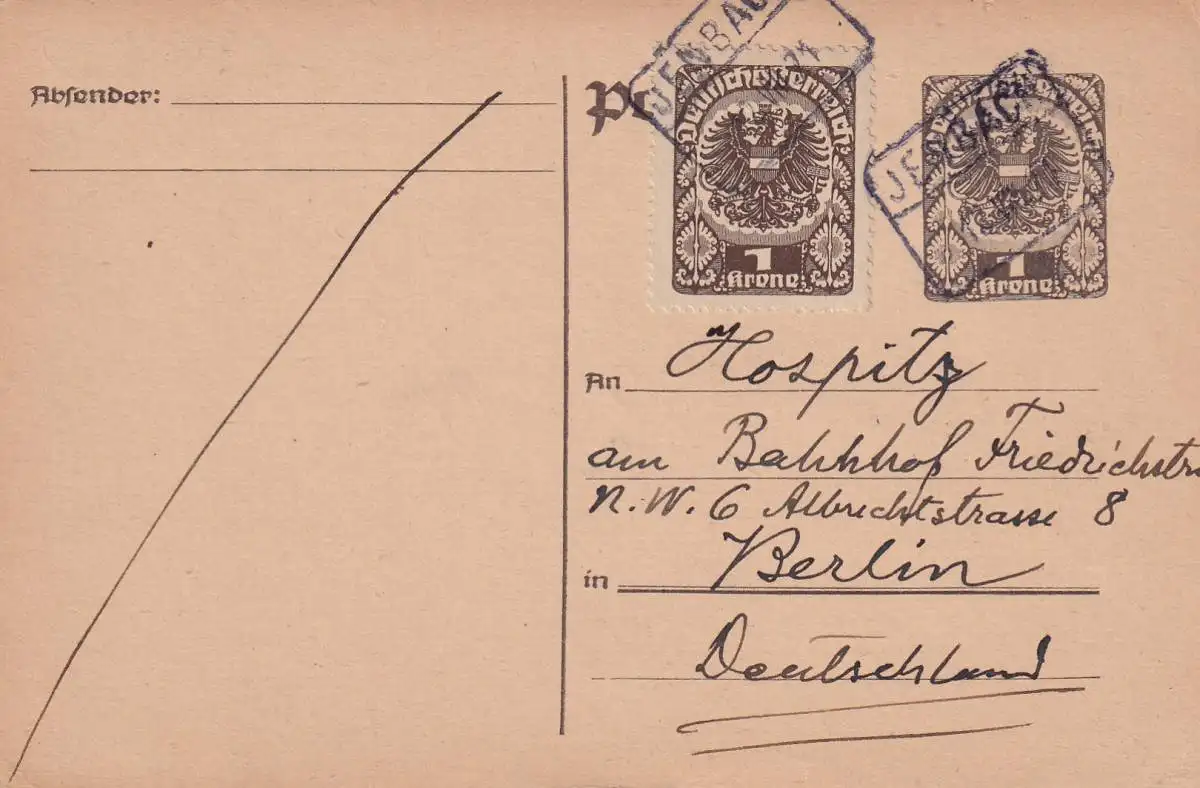 Absender:
JENBACH
Deutschösterreich
1
Krone
JENBACH
Deutschösterreich
1
Krone
An Hospitz
am Bahnhof Friedrichstr
N.W. 6 Albrechtstrasse 8
in Berlin
Deutschland